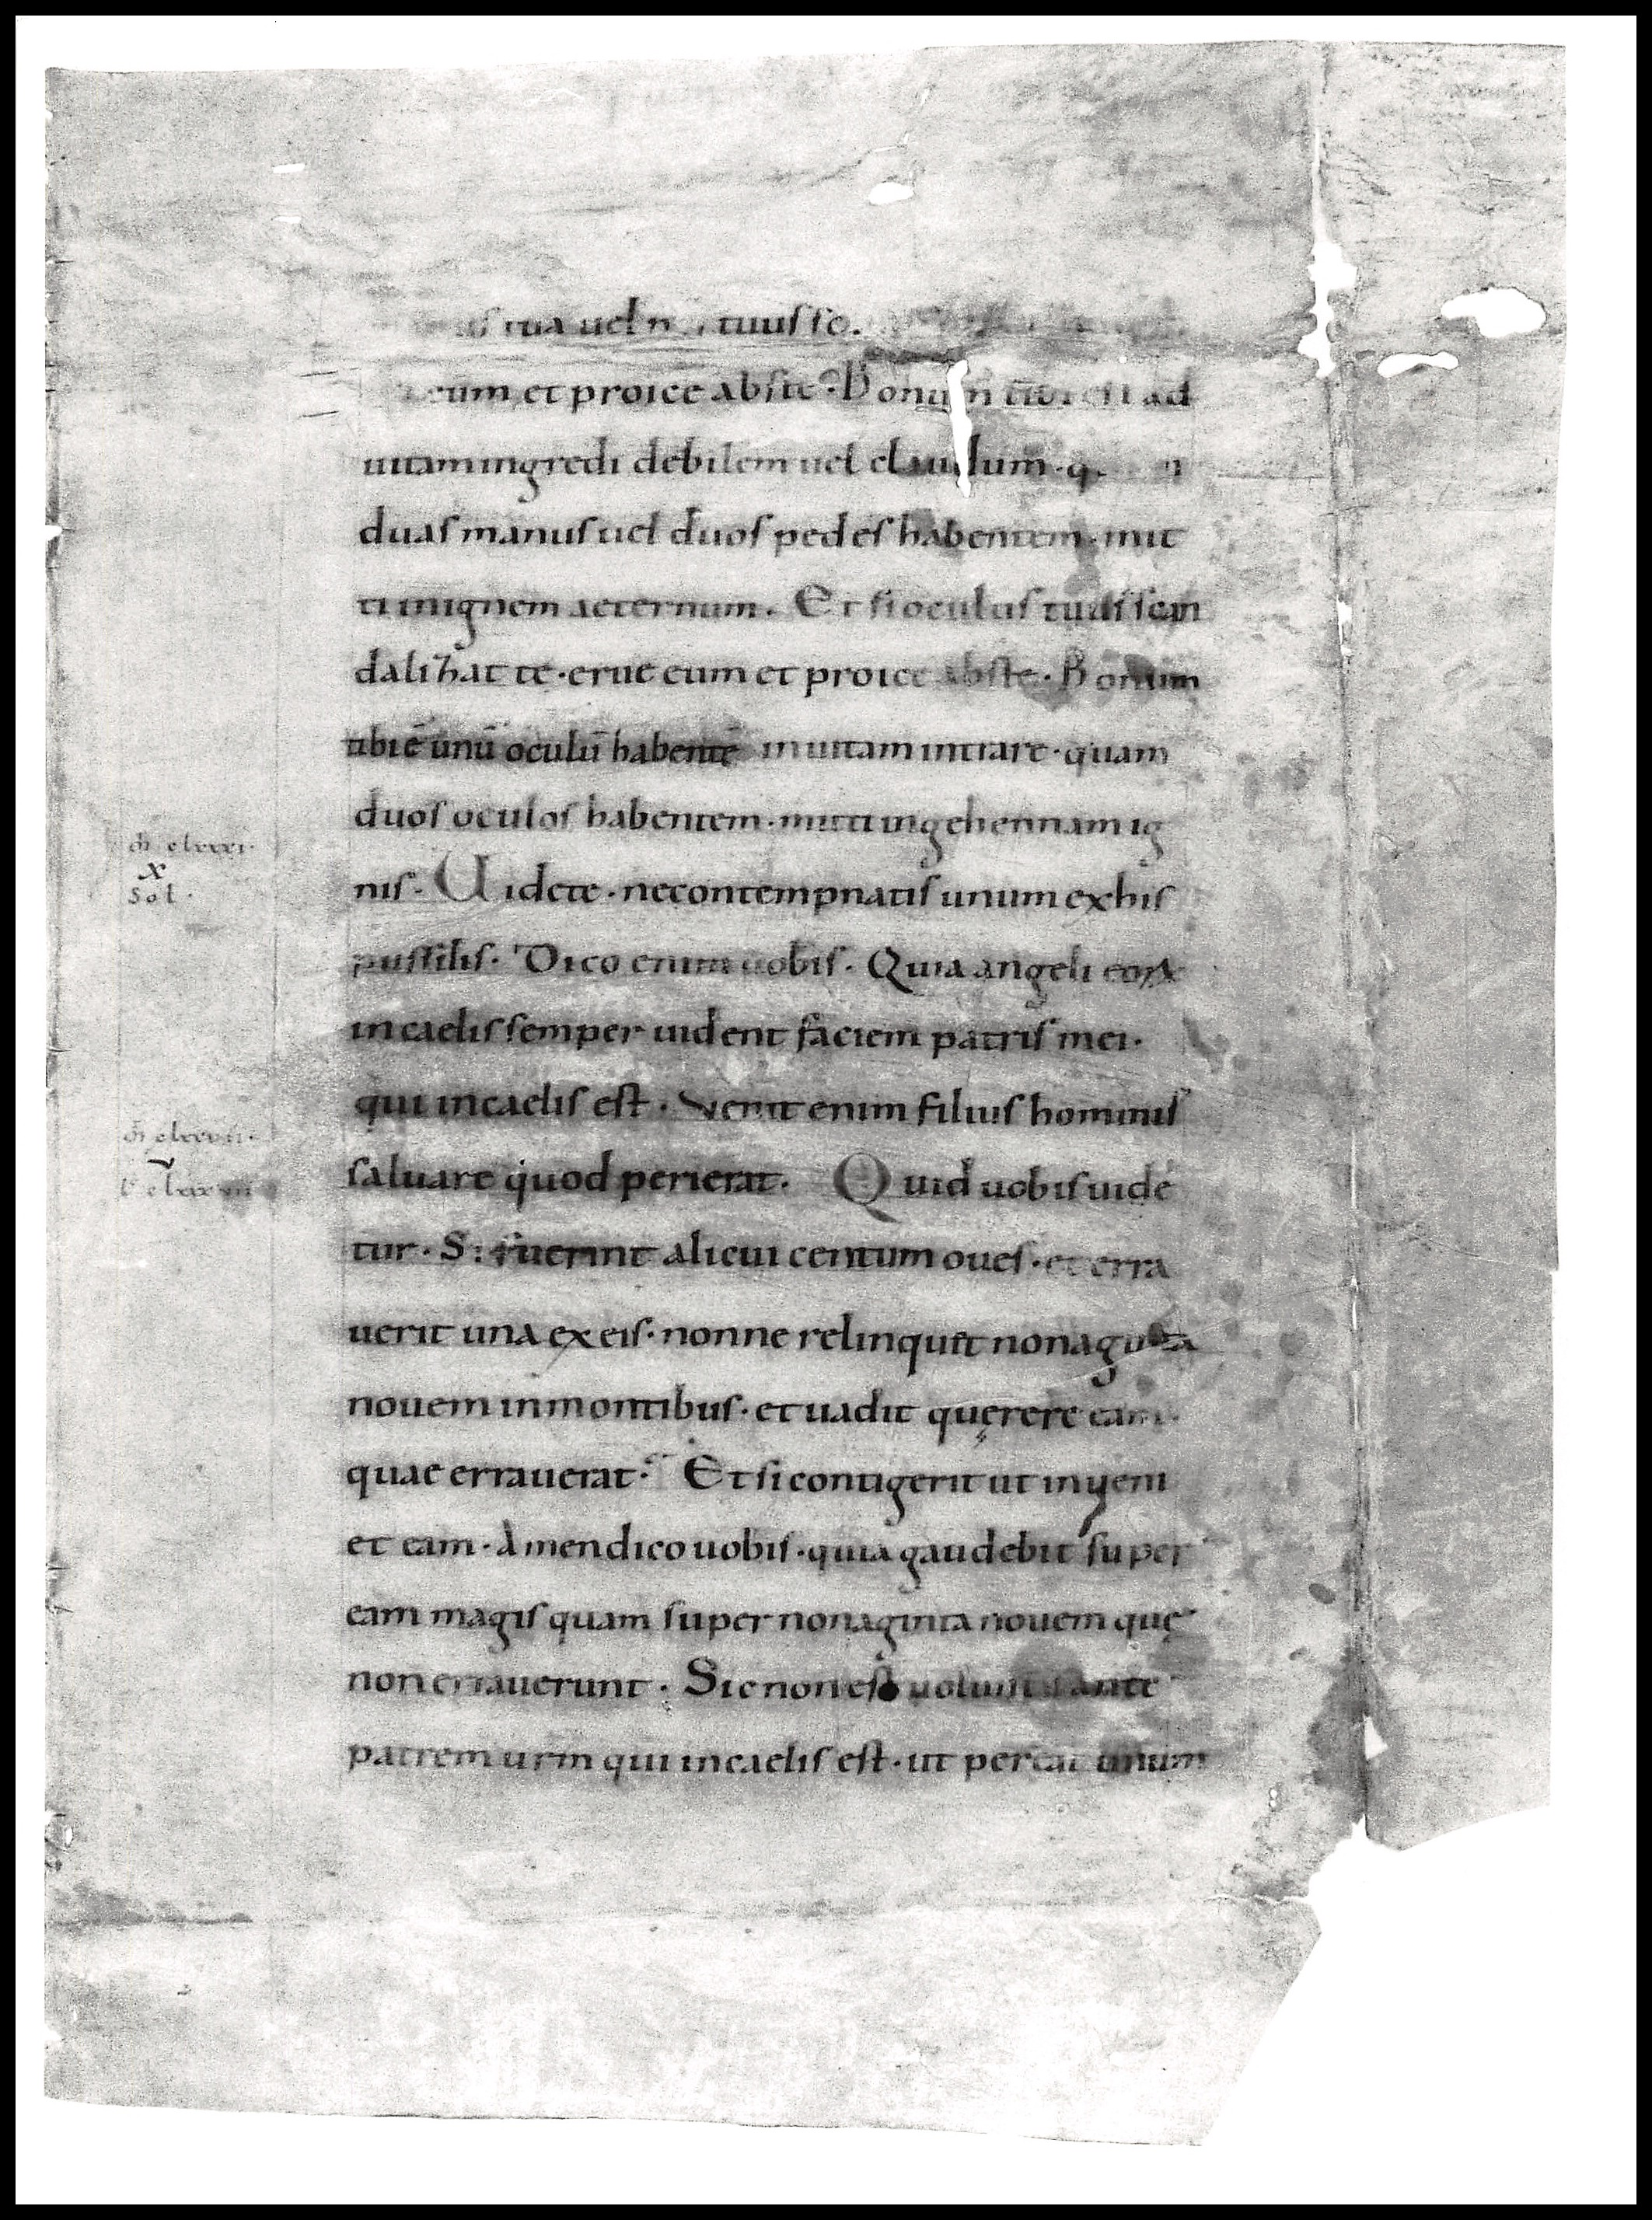 tua uel tuus sc
eum et proice abs te · Bonum tibi est ad
uitam ingredi debilem uel claudum · q
duas manus uel duos pedes habentem · mit
ti in ignem aeternum · Et si oculus tuus scan
dalizat te · erue eum et proice abs te · Bonum
tibi ē unū oculū habentē in uitam intrare · quam
duos oculos habentem · mitti in gehennam ig
nis · Uidete · ne contempnatis unum ex his
m̄ clxxxi ·
x
sol ·
pussilis · Dico enim uobis · Quia angeli eorꝝ
in caelis semper uident faciem patris mei ·
qui in caelis est · Venit enim filius hominis
saluare quod perierat · Quid uobis uide
tur · Si fuerint alicui centum oues · et erra
uerit una ex eis · nonne relinquet nonaginta
nouem in montibus · et uadit quęrere eam ·
quae errauerat · Et si contigerit ut inueni
et eam · Amen dico uobis · quia gaudebit super
eam magis quam super nonaginta nouem quę
non errauerunt · Sic non est uoluntas ante
patrem urm qui in caelis est · ut pereat unum